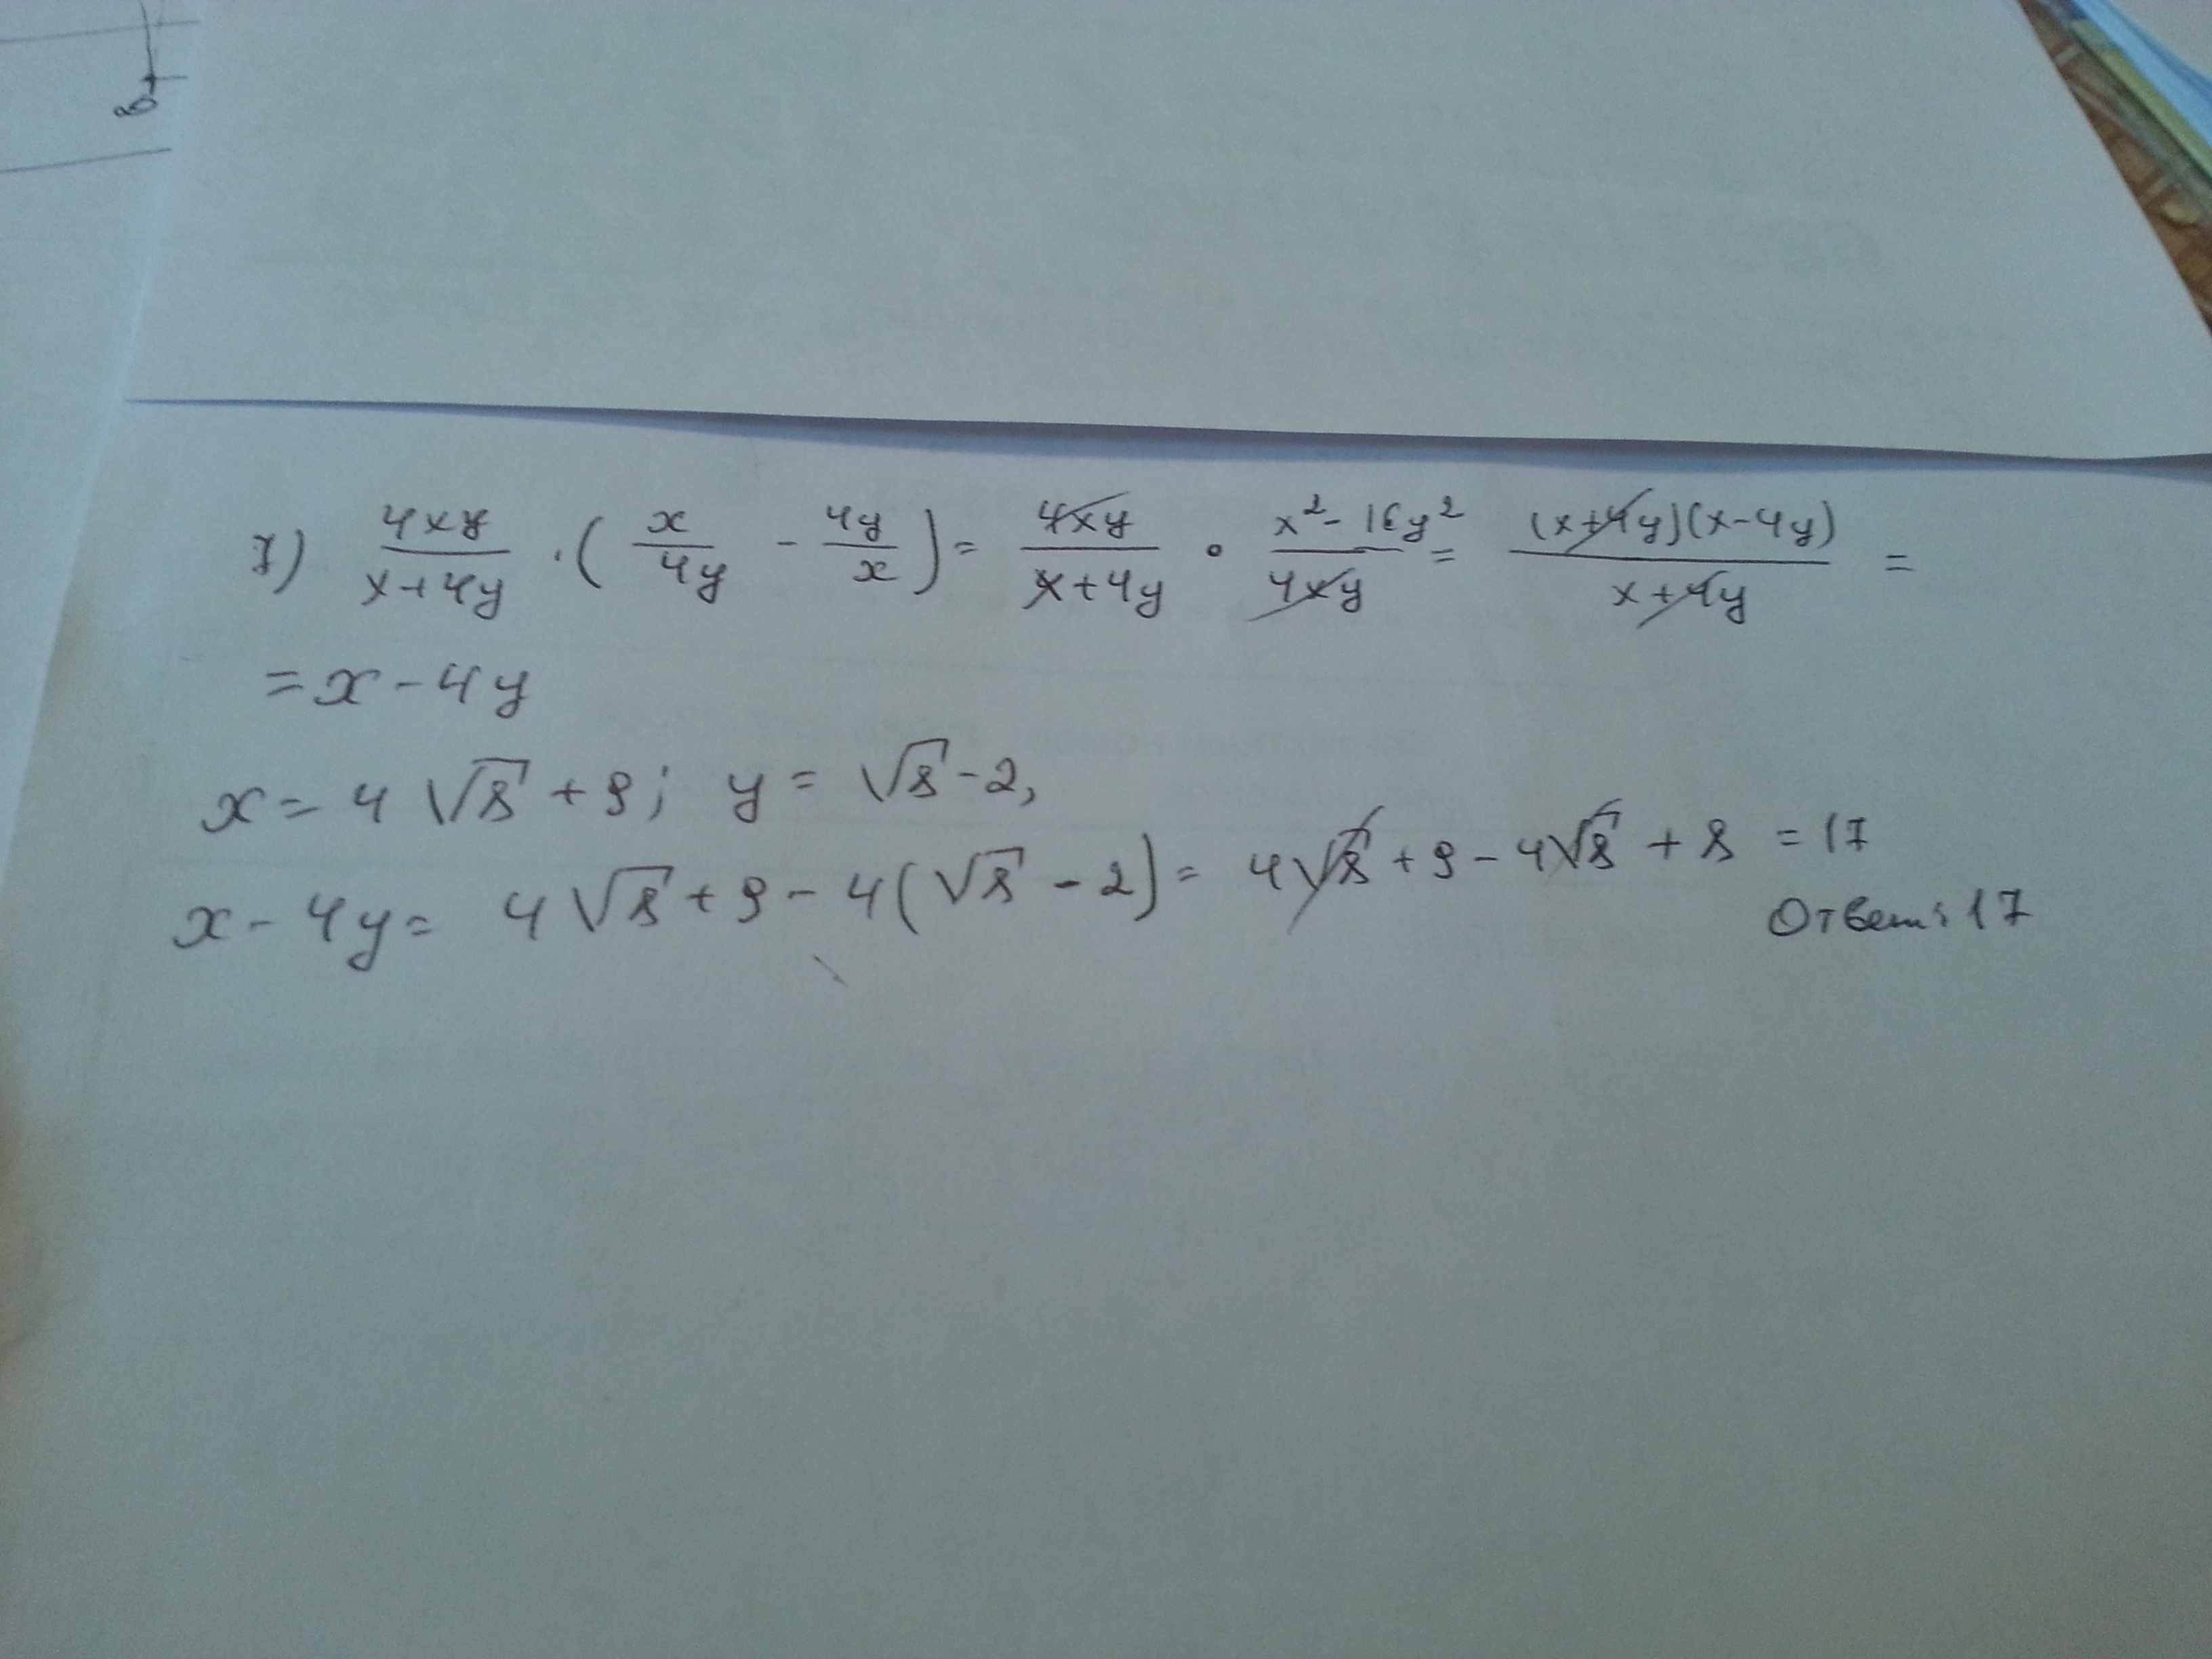 в
7) 4xy/(x+4y) · (x/4y - 4y/x) = 4xy/(x+4y) · (x²-16y²)/4xy = (x+4y)(x-4y)/(x+4y) =
= x - 4y
x = 4√8 + 9; y = √8 - 2,
x - 4y = 4√8 + 9 - 4(√8 - 2) = 4√8 + 9 - 4√8 + 8 = 17
Ответ: 17